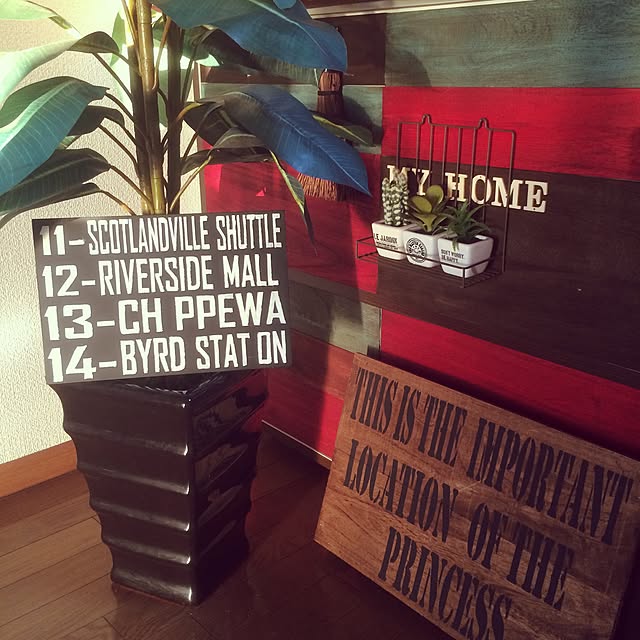 11-SCOTLANDVILLE SHUTTLE
12-RIVERSIDE MALL
13-CH PPEWA
14-BYRD STAT ON
MY HOME
LE JARDIN
DON'T WORRY
BE HAPPY
THIS IS THE IMPORTANT
LOCATION OF THE
PRINCESS